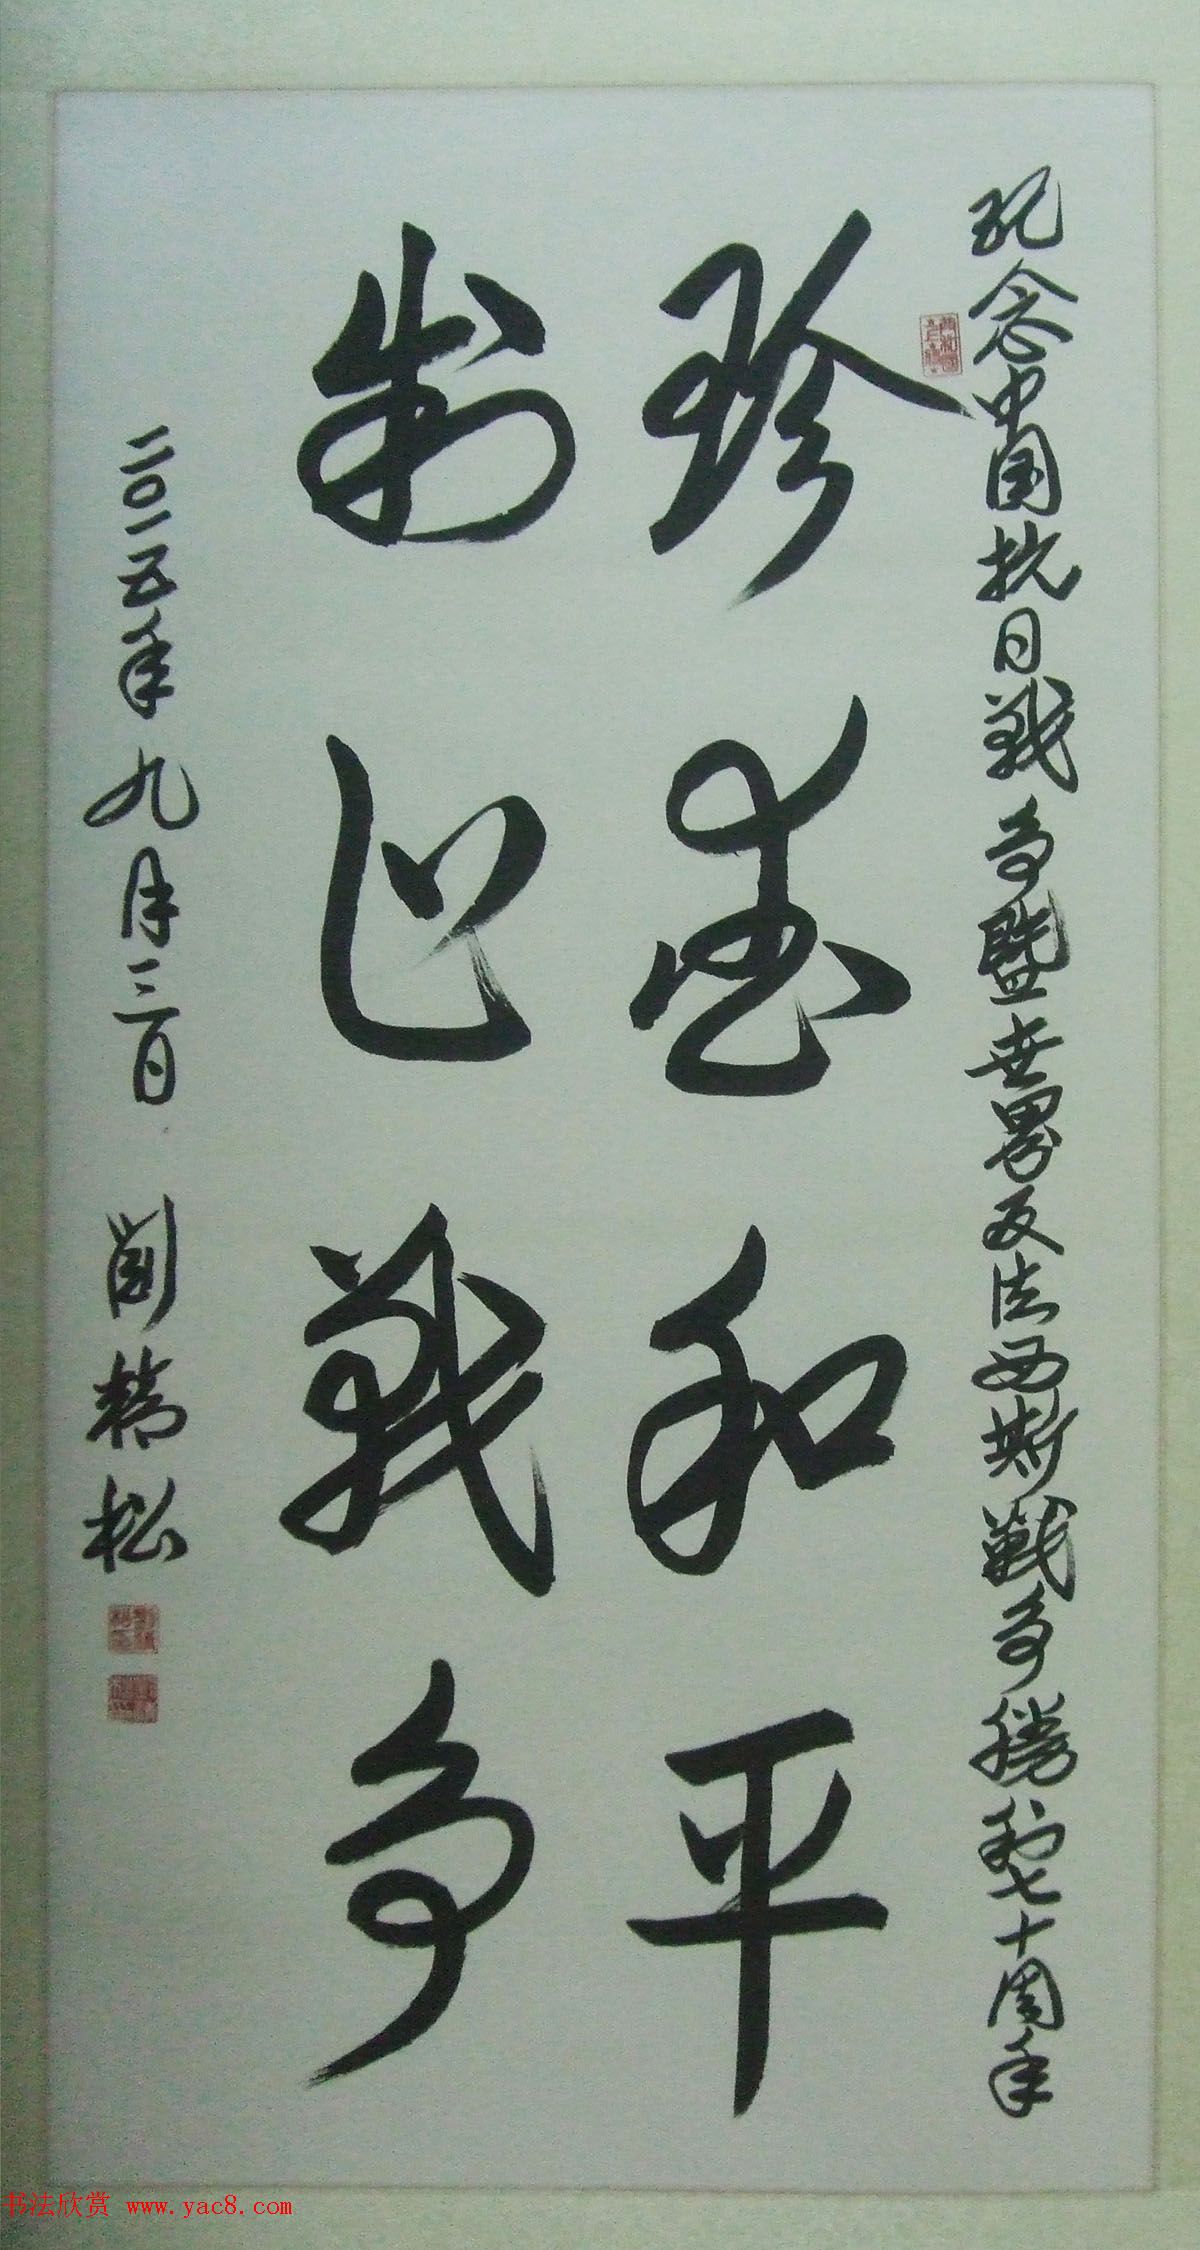 纪念中国抗日战争暨世界反法西斯战争胜利七十周年
珍爱和平
制止战争
二〇一五年九月三日 刘精松
书法欣赏 www.yac8.com